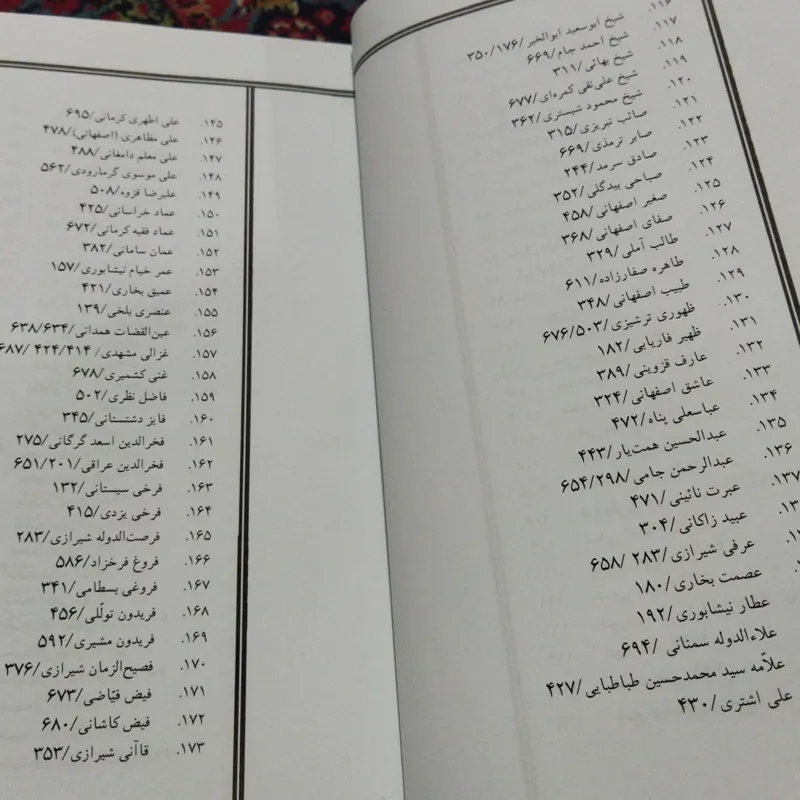 ۱۱۶. شیخ ابوسعید ابوالخیر/۱۷۶/۳۵۰
۱۱۷. شیخ احمد جام/۶۶۹
۱۱۸. شیخ بهائی/۳۱۱
۱۱۹. شیخ علی‌نقی کمره‌ای/۶۷۷
۱۲۰. شیخ محمود شبستری/۳۶۲
۱۲۱. صائب تبریزی/۳۱۵
۱۲۲. صابر ترمذی/۶۶۹
۱۲۳. صادق سرمد/۲۴۴
۱۲۴. صباحی بیدگلی/۳۵۲
۱۲۵. صغیر اصفهانی/۴۵۸
۱۲۶. صفای اصفهانی/۳۶۸
۱۲۷. طالب آملی/۳۲۹
۱۲۸. طاهره صفارزاده/۶۱۱
۱۲۹. طبیب اصفهانی/۳۴۸
۱۳۰. ظهوری ترشیزی/۵۰۳/۶۷۶
۱۳۱. ظهیر فاریابی/۱۸۲
۱۳۲. عارف قزوینی/۳۸۹
۱۳۳. عاشق اصفهانی/۳۲۴
۱۳۴. عباسعلی پناه/۴۷۲
۱۳۵. عبدالحسین همت‌یار/۴۴۳
۱۳۶. عبدالرحمن جامی/۲۹۸/۶۵۴
۱۳۷. عبرت نائینی/۴۷۱
عبید زاکانی/۳۰۴
عرفی شیرازی/۲۸۳ /۶۵۸
عصمت بخاری/۱۸۰
عطار نیشابوری/۱۹۲
علاءالدوله سمنانی /۶۹۴
علاّمه سید محمدحسین طباطبایی/۴۲۷
علی اشتری/۴۳۰
۱۴۵. علی اطهری کرمانی/۶۹۵
۱۴۶. علی مظاهری (اصفهانی)/۴۷۸
۱۴۷. علی معلم دامغانی/۴۸۸
۱۴۸. علی موسوی گرمارودی/۵۶۲
۱۴۹. علیرضا قزوه/۵۰۸
۱۵۰. عماد خراسانی/۴۲۵
۱۵۱. عماد فقیه کرمانی/۶۷۲
۱۵۲. عمان سامانی/۳۸۲
۱۵۳. عمر خیام نیشابوری/۱۵۷
۱۵۴. عمیق بخاری/۴۲۱
۱۵۵. عنصری بلخی/۱۳۹
۱۵۶. عین‌القضات همدانی/۶۳۴/۶۳۸
۱۵۷. غزالی مشهدی/ ۴۱۴/ ۴۲۴/ ۶۸۷
۱۵۸. غنی کشمیری/۶۷۸
۱۵۹. فاضل نظری/۵۰۲
۱۶۰. فایز دشتستانی/۳۴۵
۱۶۱. فخرالدین اسعد گرگانی/۲۷۵
۱۶۲. فخرالدین عراقی/۲۰۱/۶۵۱
۱۶۳. فرخی سیستانی/۱۳۲
۱۶۴. فرخی یزدی/۴۱۵
۱۶۵. فرصت‌الدوله شیرازی/۲۸۳
۱۶۶. فروغ فرخزاد/۵۸۶
۱۶۷. فروغی بسطامی/۳۴۱
۱۶۸. فریدون تولّلی/۴۵۶
۱۶۹. فریدون مشیری/۵۹۲
۱۷۰. فصیح‌الزمان شیرازی/۳۷۶
۱۷۱. فیض فیّاضی/۶۷۳
۱۷۲. فیض کاشانی/۶۸۰
۱۷۳. قاآنی شیرازی/۳۵۳